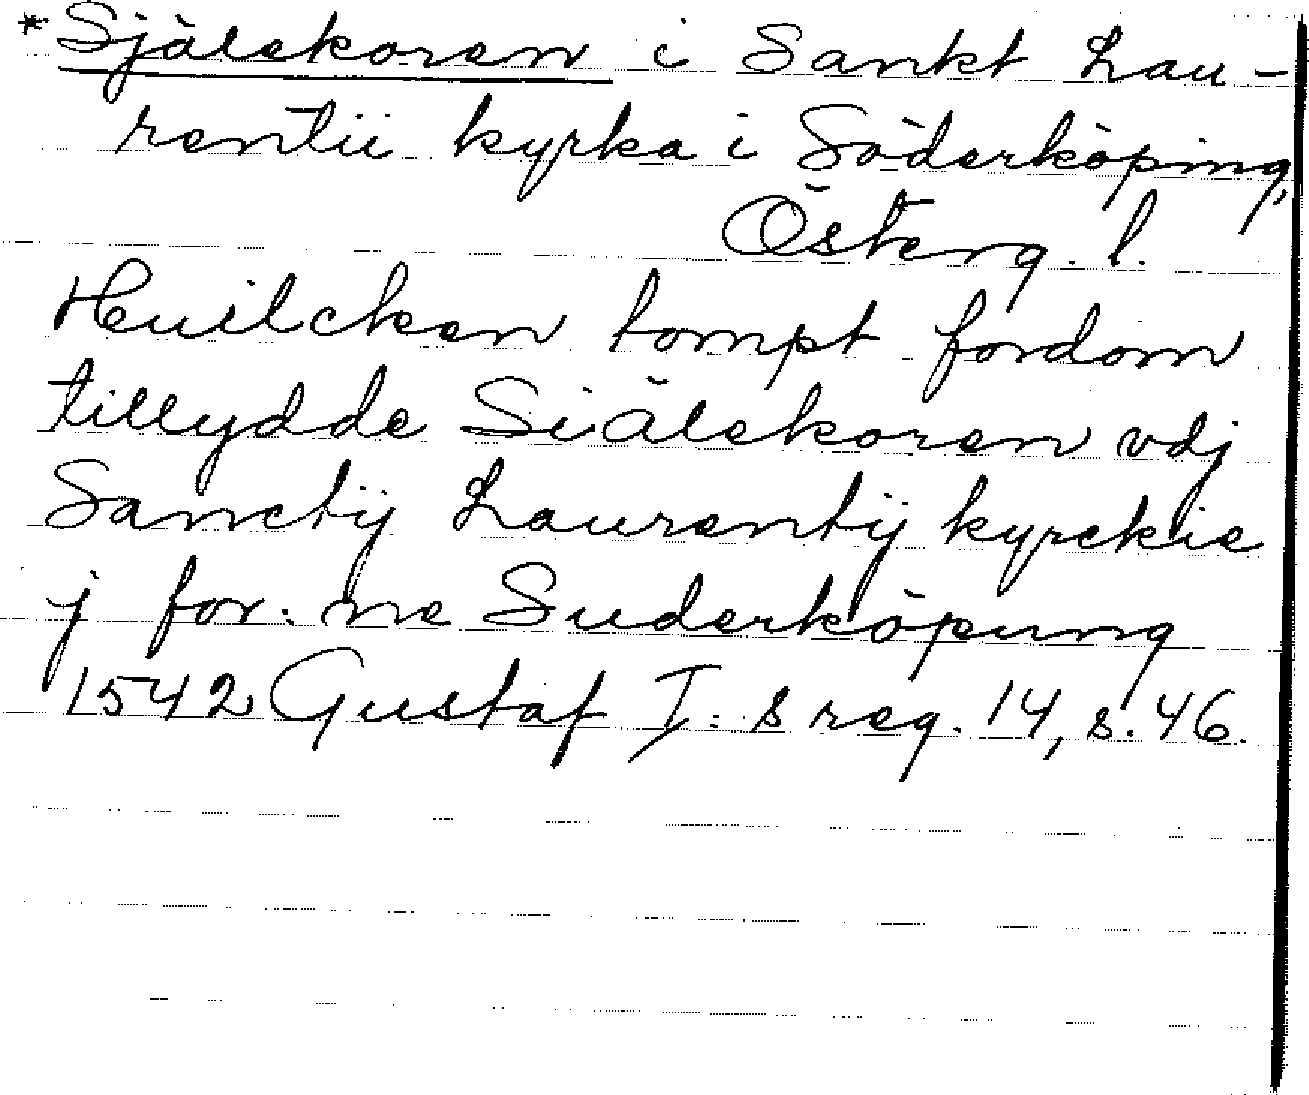 *Själekoren i Sankt Lau-
rentii kyrka i Söderköping,
Österg. l.
Huilcken tompt fordom
tillydde Siälekoren vdj
Sanctij Laurentij kyrckie
j for: ne Suderköpung
1542 Gustaf I: s reg. 14, s. 46.